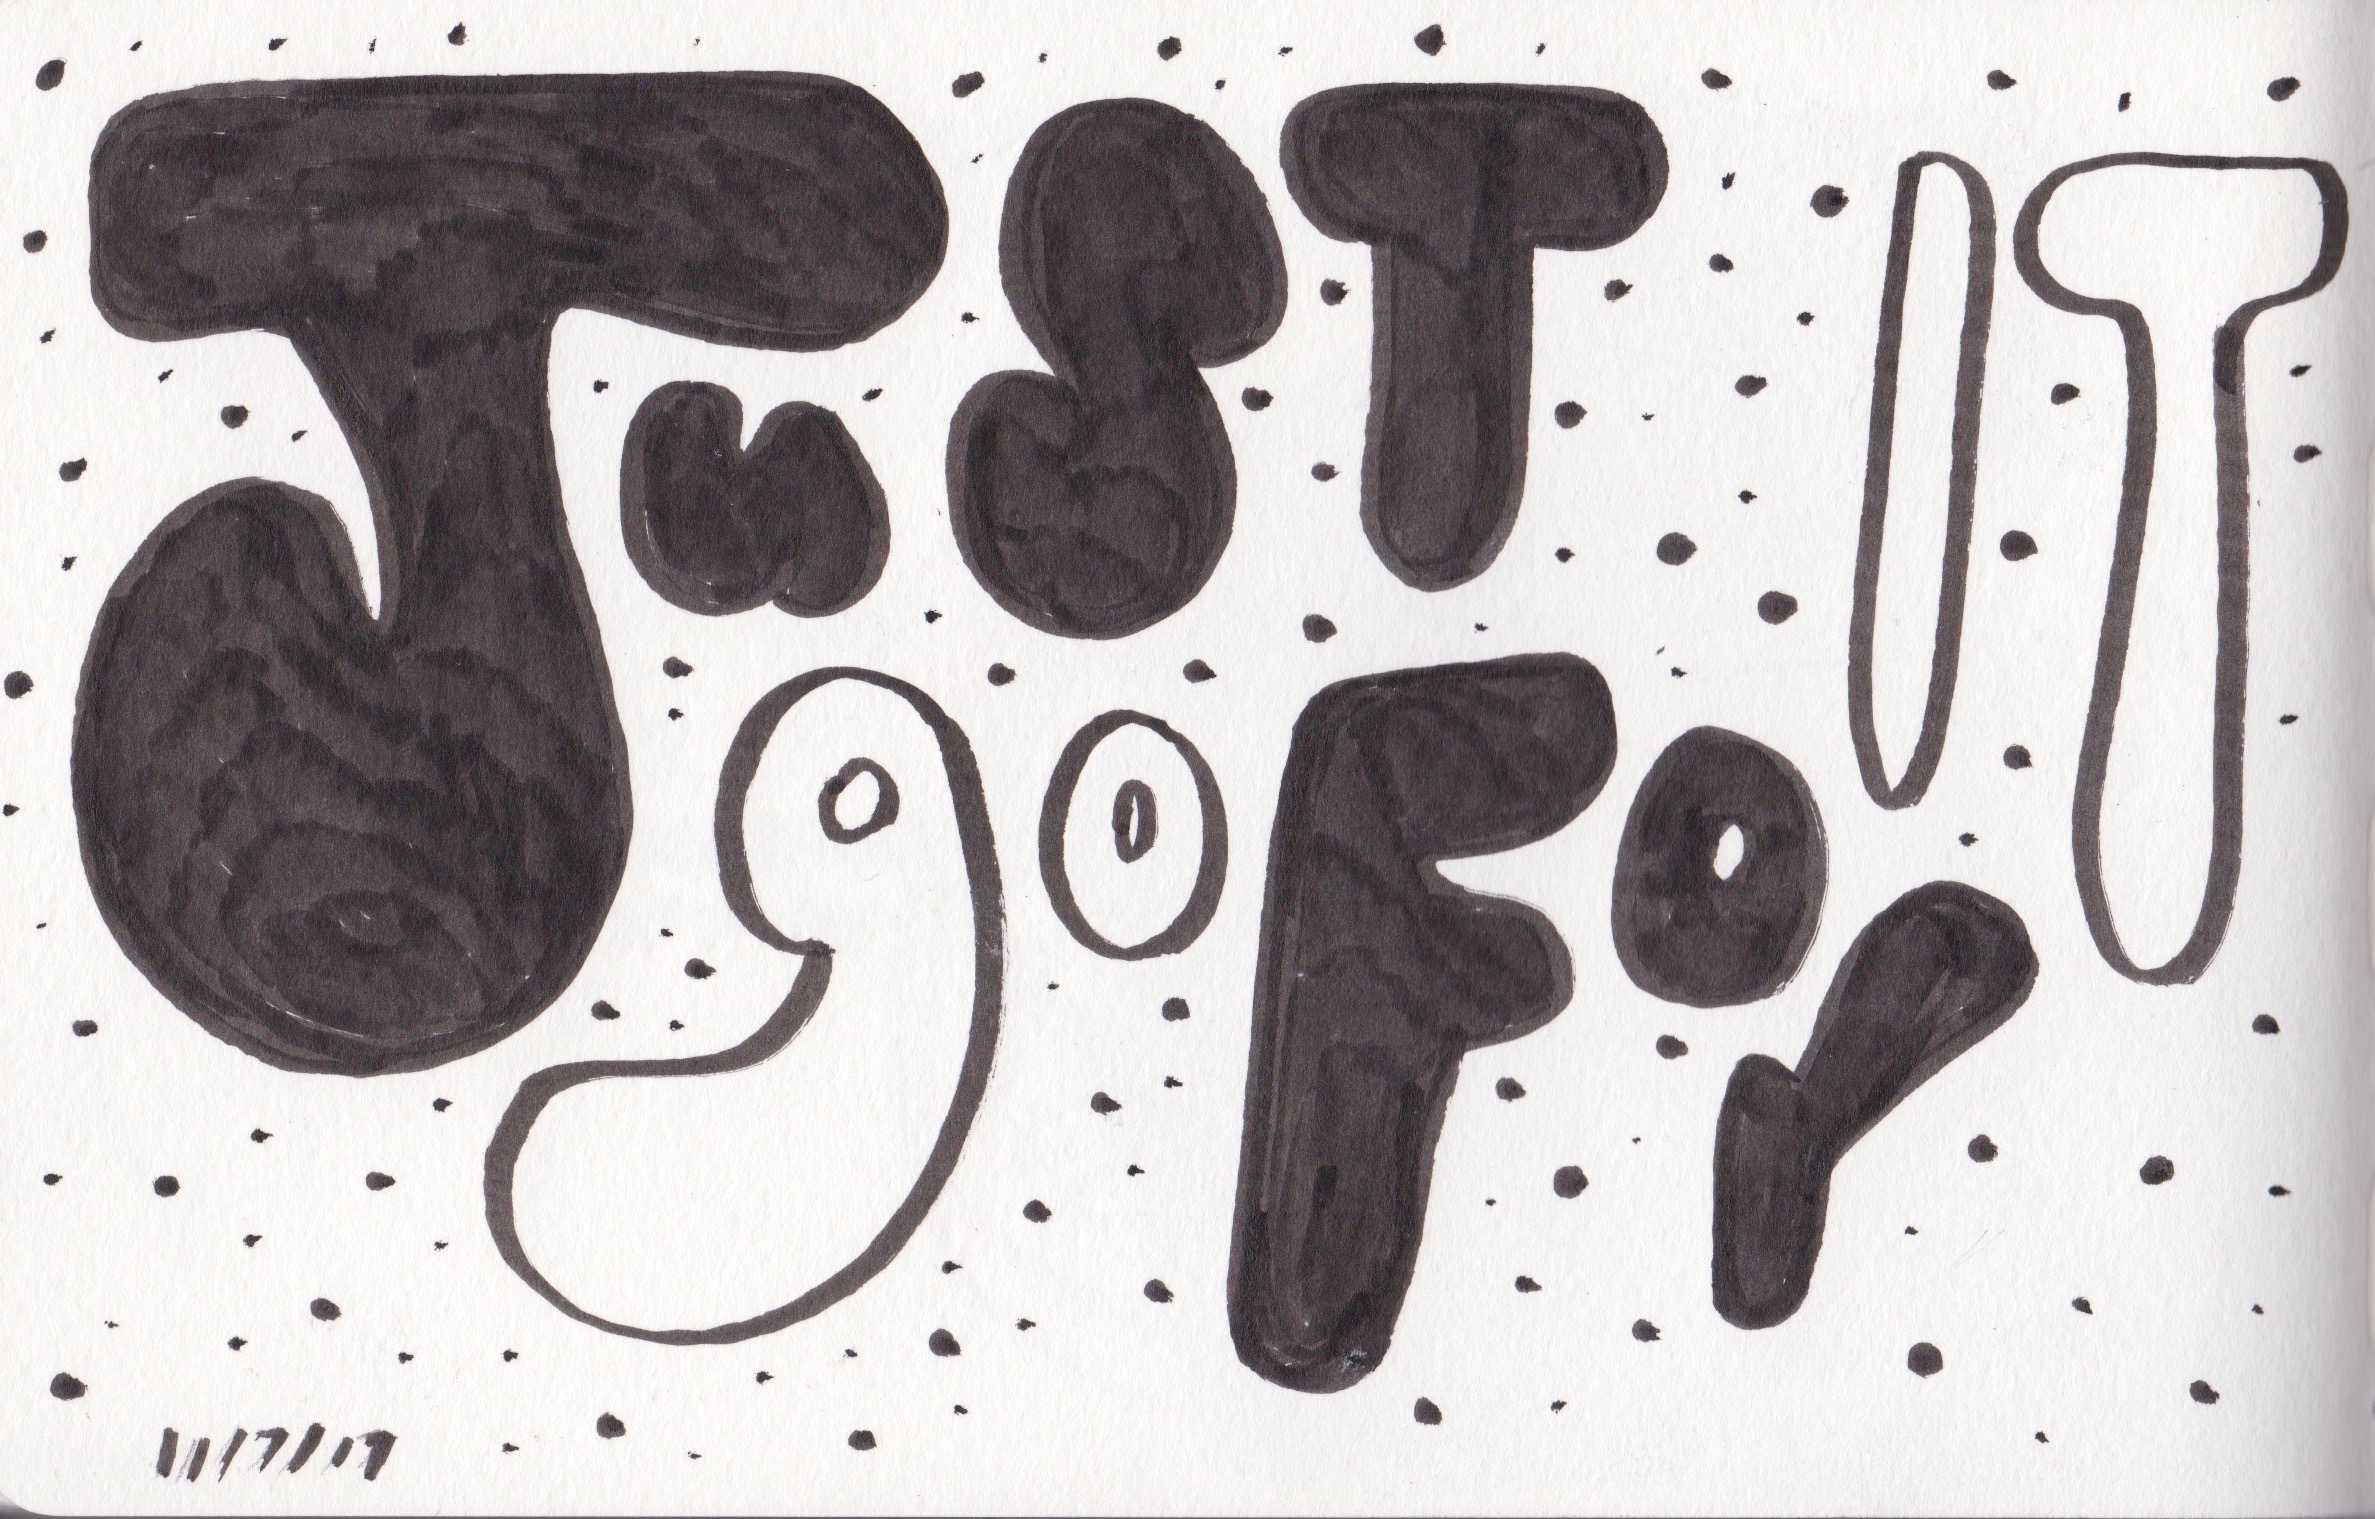 JuST
go For
IT
11/7/17